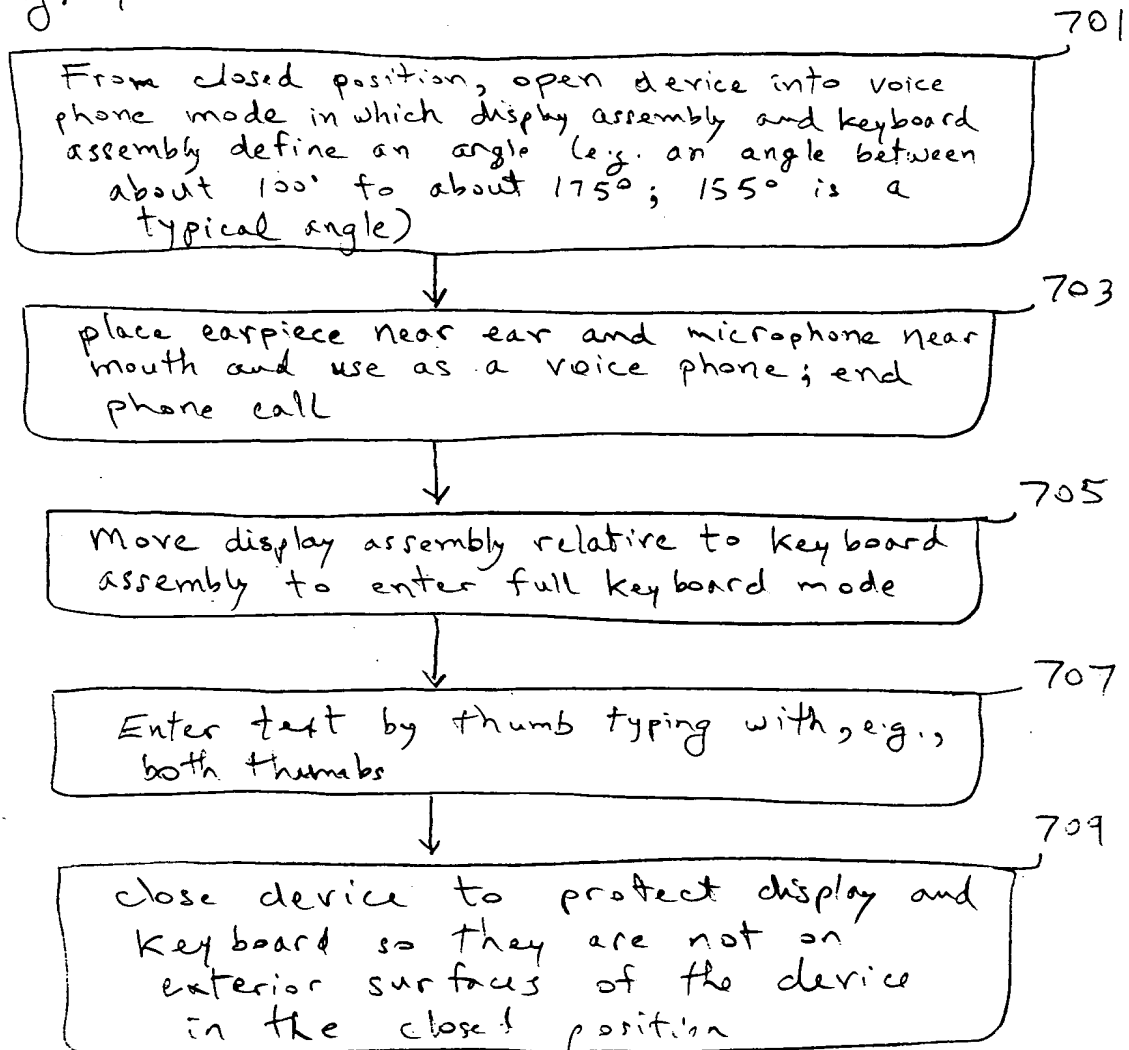 701
From closed position, open device into voice
phone mode in which display assembly and keyboard
assembly define an angle (e.g. an angle between
about 100° to about 175°; 155° is a
typical angle)
703
place earpiece near ear and microphone near
mouth and use as a voice phone; end
phone call
705
Move display assembly relative to keyboard
assembly to enter full keyboard mode
707
Enter text by thumb typing with, e.g.,
both thumbs
709
close device to protect display and
keyboard so they are not on
exterior surfaces of the device
in the closed position